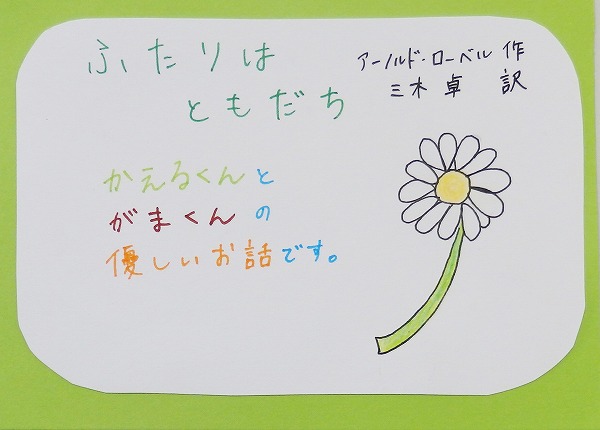 ふたりは
ともだち
アーノルド・ローベル 作
三木 卓 訳
かえるくんと
がまくんの
優しいお話です。